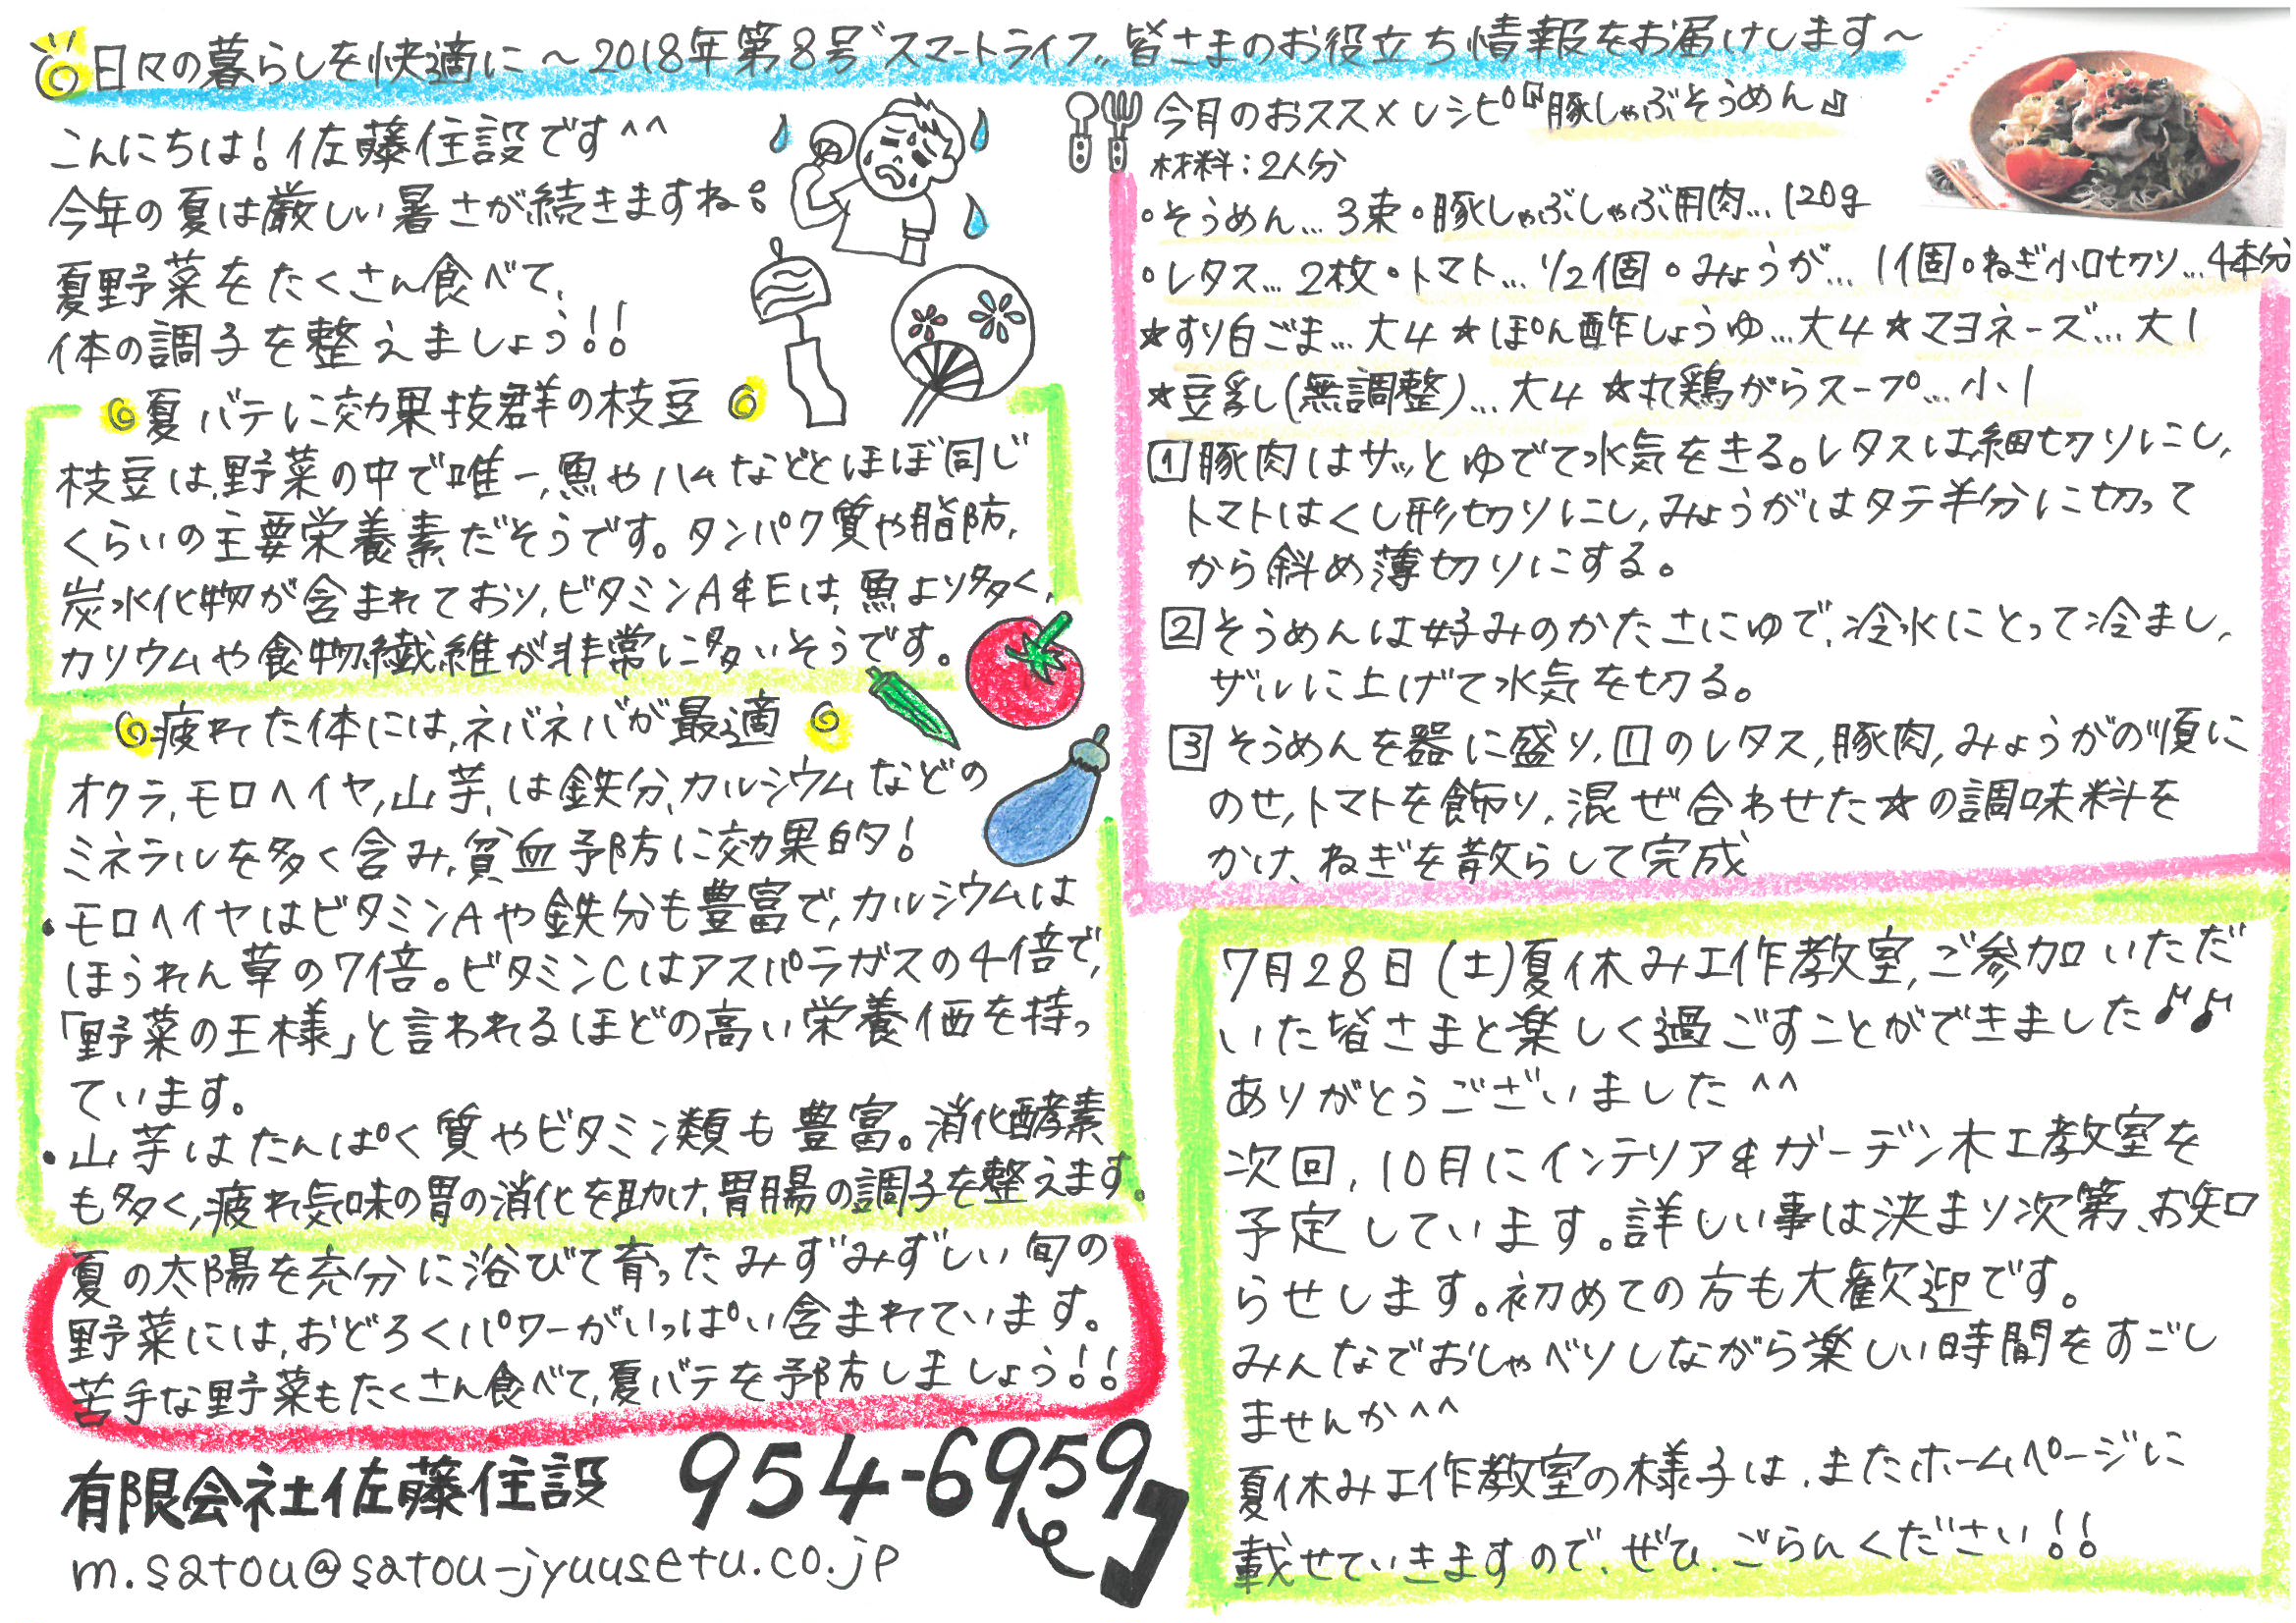 日々の暮らしを快適に～2018年第8号"スマートライフ"皆さまのお役立ち情報をお届けします～
こんにちは!佐藤住設です^^
今年の夏は厳しい暑さが続きますね。
夏野菜をたくさん食べて、
体の調子を整えましょう!!
夏バテに効果抜群の枝豆
枝豆は、野菜の中で唯一、魚やハムなどとほぼ同じ
くらいの主要栄養素だそうです。タンパク質や脂肪、
炭水化物が含まれており、ビタミンA&Eは、魚より多く、
カリウムや食物繊維が非常に多いそうです。
疲れた体には、ネバネバが最適
オクラ、モロヘイヤ、山芋、は鉄分、カルシウムなどの
ミネラルを多く含み、貧血予防に効果的!
・モロヘイヤはビタミンAや鉄分も豊富で、カルシウムは
ほうれん草の7倍。ビタミンCはアスパラガスの4倍で、
「野菜の王様」と言われるほどの高い栄養価を持っ
ています。
・山芋はたんぱく質やビタミン類も豊富。消化酵素
も多く、疲れ気味の胃の消化を助け、胃腸の調子を整えます。
夏の太陽を充分に浴びて育ったみずみずしい旬の
野菜には、おどろくパワーがいっぱい含まれています。
苦手な野菜もたくさん食べて、夏バテを予防しましょう!!
有限会社佐藤住設 954-6959
m.satou@satou-jyuusetu.co.jp
今月のおススメレシピ『豚しゃぶそうめん』
材料:2人分
・そうめん…3束・豚しゃぶしゃぶ用肉…120g
・レタス…2枚・トマト…1/2個・みょうが…1個・ねぎ小口切り…4本分
★すり白ごま…大4★ぽん酢しょうゆ…大4★マヨネーズ…大1
★豆乳(無調整)…大4☆丸鶏がらスープ…小1
1豚肉はサッとゆでて水気をきる。レタスは細切りにし、
トマトはくし形切りにし、みょうがはタテ半分に切って
から斜め薄切りにする。
2そうめんは好みのかたさにゆで、冷水にとって冷まし、
ザルに上げて水気を切る。
3そうめんを器に盛り、1のレタス、豚肉、みょうがの順に
のせ、トマトを飾り、混ぜ合わせた☆の調味料を
かけ、ねぎを散らして完成
7月28日(土)夏休み工作教室、ご参加いただ
いた皆さまと楽しく過ごすことができました♪♪
ありがとうございました^^
次回、10月にインテリア&ガーデン木工教室を
予定しています。詳しい事は決まり次第、お知
らせします。初めての方も大歓迎です。
みんなでおしゃべりしながら楽しい時間をすごし
ませんか^^
夏休み工作教室の様子は、またホームページに
載せていきますので、ぜひ、ごらんください!!